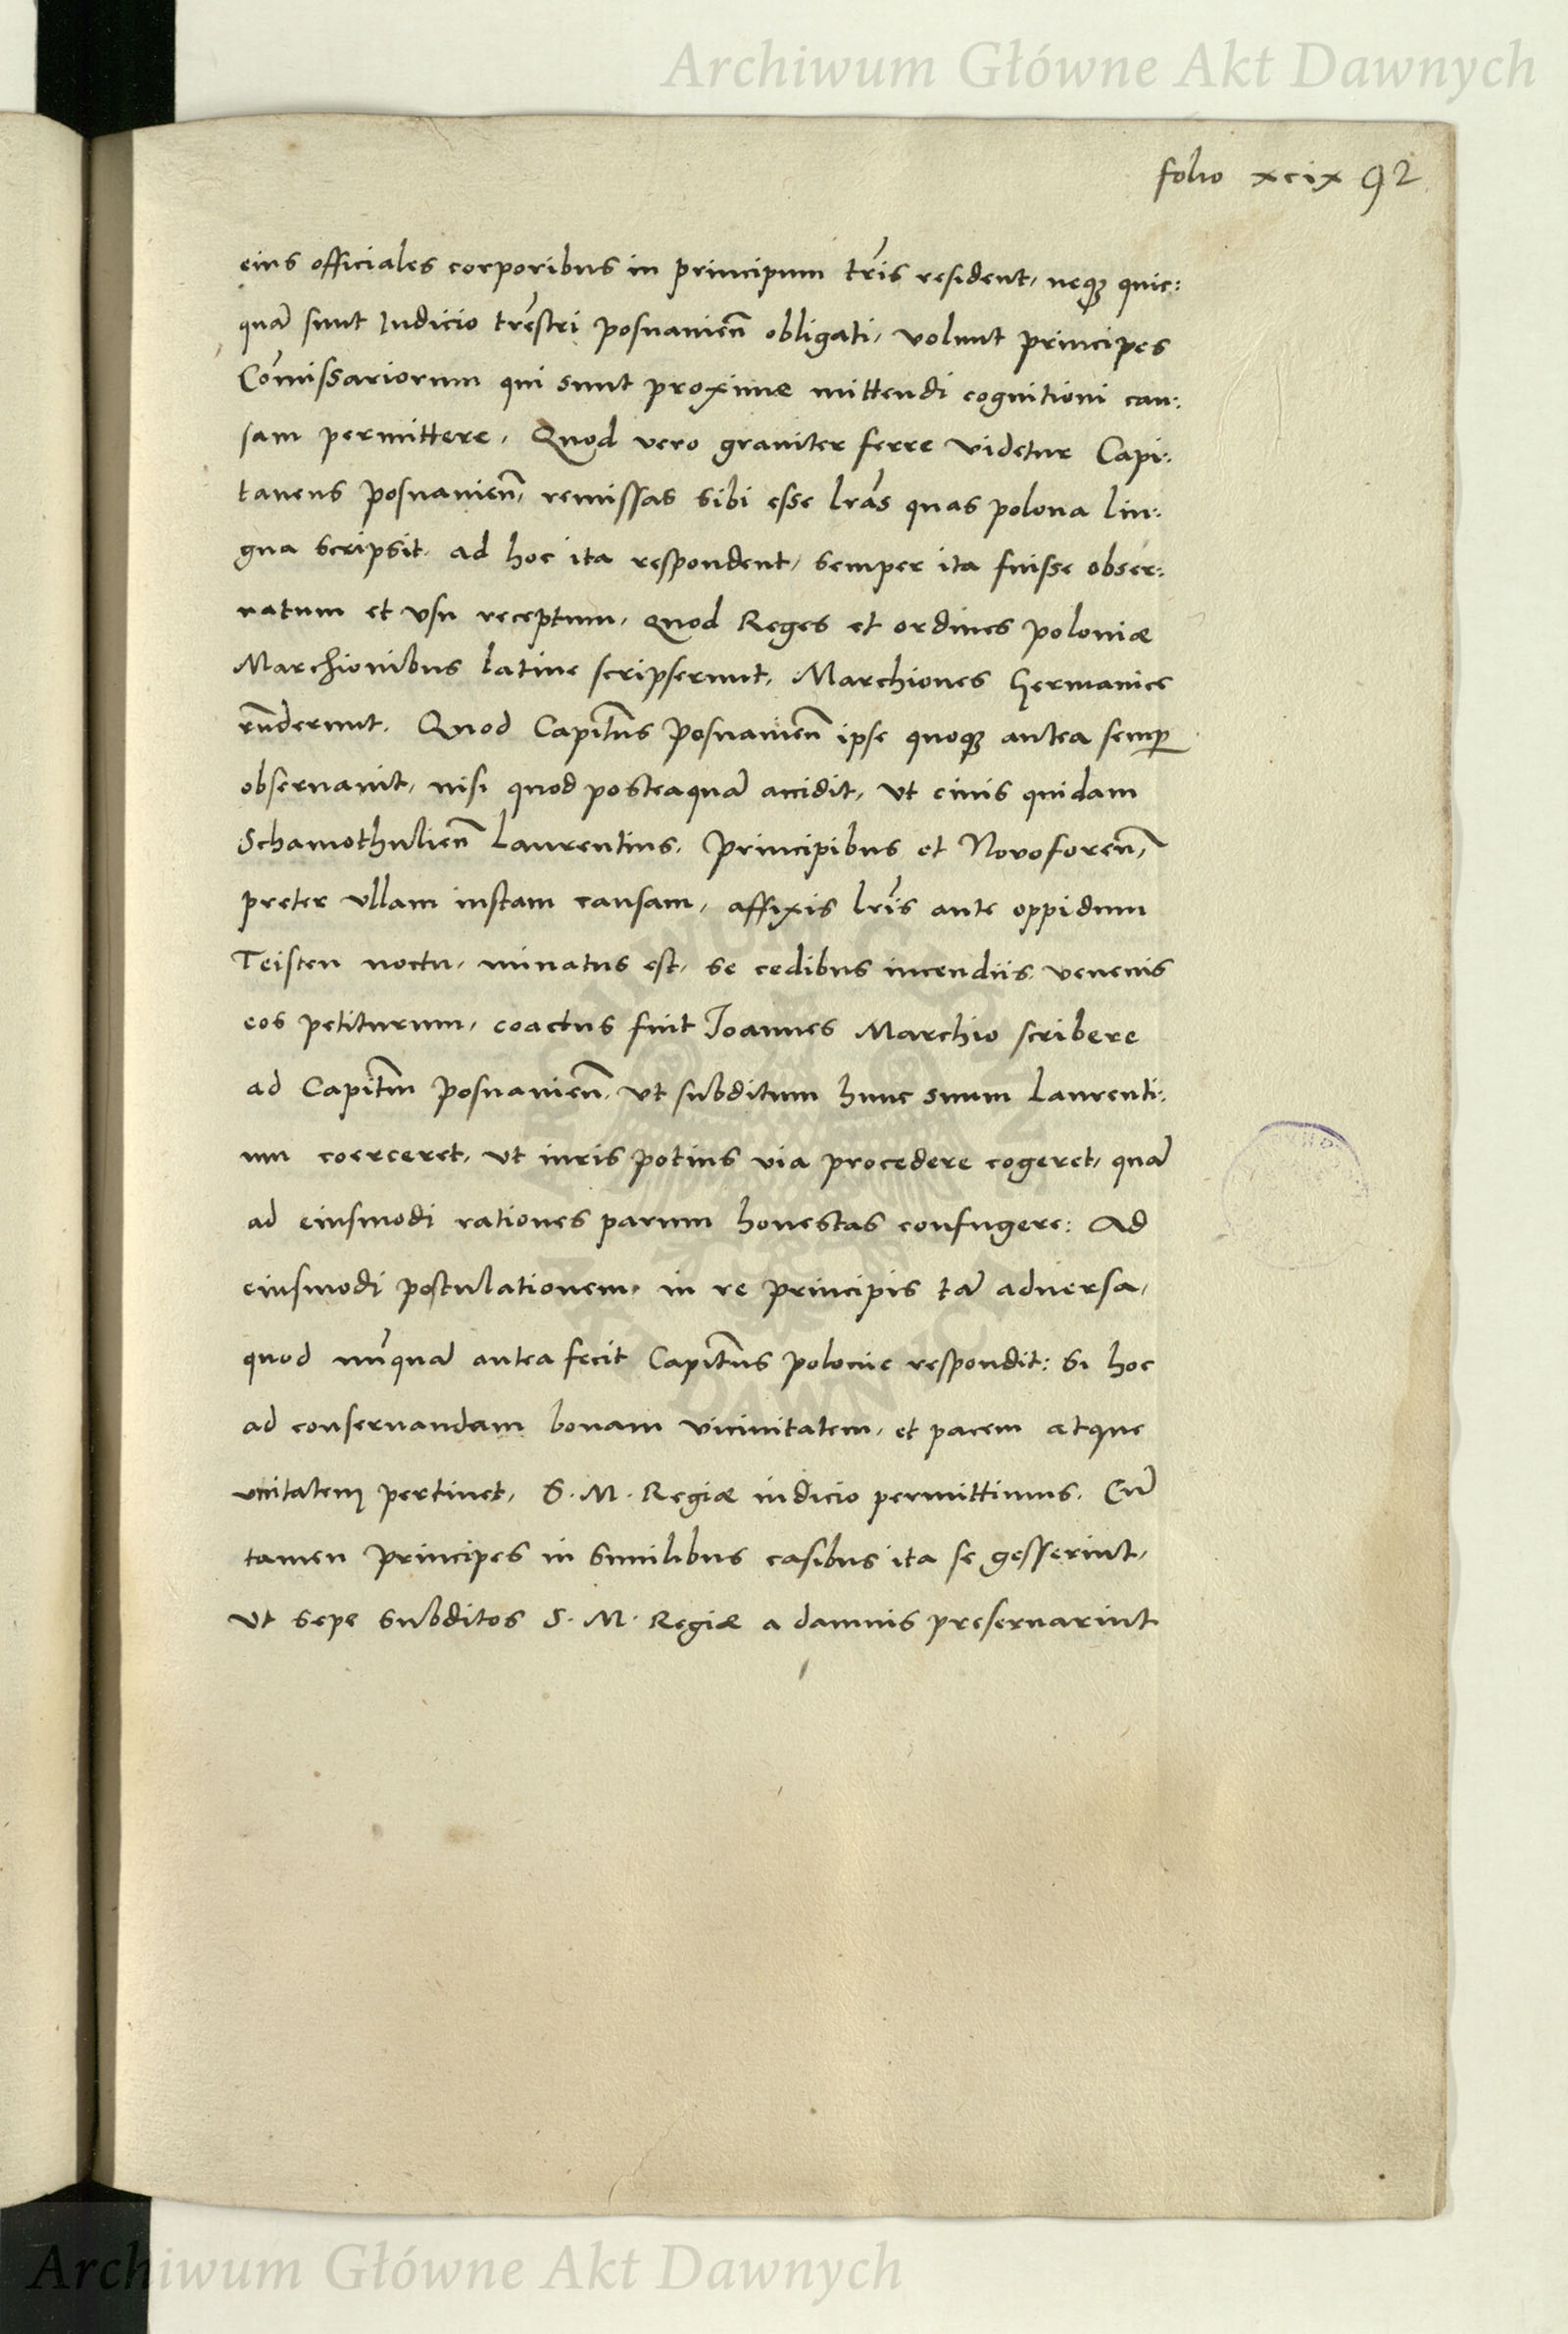 Archiwum Główne Akt Dawnych
folio xcix 92
eius officiales corporibus in principum tr̃is resident, neqꝫ quic:
quã sunt Iudicio trẽstri posnanien̄ obligati, volunt principes
Com̃issariorum qui sunt proxime mittendi cognitioni cau:
sam permittere, Quod vero graviter ferre videtur Capi:
taneus posnanien̄, remissas sibi esse lr̃as quas polona lin:
gua scripsit. ad hoc ita respondent, semper ita fuisse obser:
uatum et vsu receptum, quod Reges et ordines poloniæ
Marchionibus latine scripserunt, Marchiones Germanice
rñderunt. Quod Capitñus Posnanien̄ ipse quoqꝫ antea semp̱
obseruauit, nisi quod posteaquã accidit, vt ciuis quidam
Schamothulien̄ Laurentius. Principibus et Novoforen̄,
preter vllam iustam causam, affixis lr̃is ante oppidum
Teisten noctu, minatus est, se cedibus incendiis venenis
eos petiturum, coactus fuit Joannes Marchio scribere
ad Capitñm Posnanien̄, vt subditum hunc suum Laurenti:
um coerceret, vt iuris potius via procedere cogeret, quã
ad eiusmodi rationes parum honestas confugere: Ad
eiusmodi postulationem, in re principis tã aduersa,
quod nũquã antea fecit Capitñus polonie respondit: Si hoc
ad conseruandam bonam vicinitatem, et pacem atque
vnitatem pertinet, S. M. Regiæ iudicio permittimus. Cũ
tamen principes in similibus casibus ita se gesserint,
vt sepe subditos S. M. Regiæ a damnis preseruarint
ARCHIWUM GŁÓWNE AKT DAWNYCH
Archiwum Główne Akt Dawnych